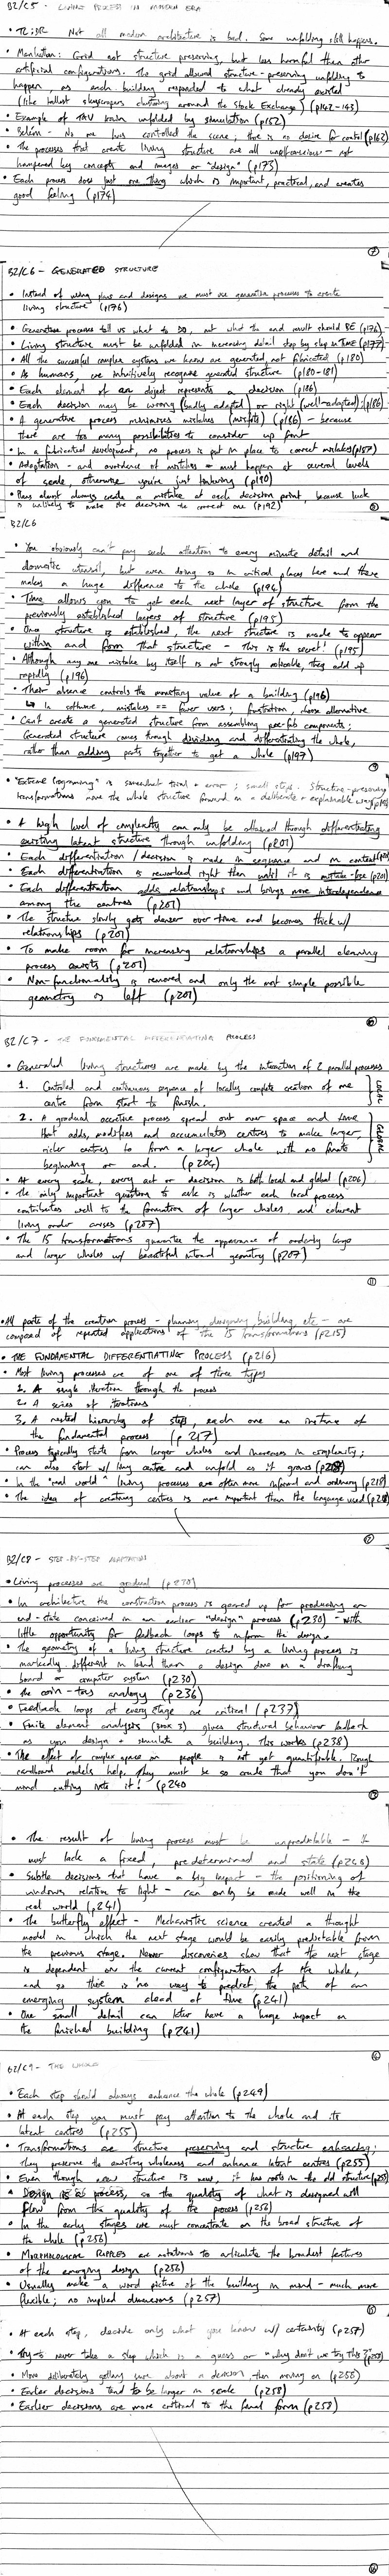 B2/C5 - LIVING PROCESS IN MODERN ERA
• TL;DR Not all modern architecture is bad. Some unfolding still happens.
• Manhattan: Grid not structure preserving, but less harmful than other
artificial configurations. The grid allowed structure-preserving unfolding to
happen, as each building responded to what already existed
(like tallest skyscrapers clustering around the Stock Exchange) (p142-143)
• Example of town unfolded by simulation (p152)
• No one controlled the scene; there is no desire for control (p162)
• The processes that create living structure are all unselfconscious - not
hampered by concepts and images or "design" (p173)
• Each process does just one thing which is important, practical, and creates
good feeling (p174)
7
B2/C6 - GENERATED STRUCTURE
• Instead of using plans and designs we must use generative processes to create
living structure (p176)
• Generative processes tell us what to DO, not what the end result should BE (p176)
• Living structure must be unfolded in increasing detail step by step in TIME (p177)
• All the successful complex systems we know are generated, not fabricated (p180)
• As humans, we intuitively recognise generated structure (p180-181)
• Each element of an object represents a decision (p186)
• Each decision may be wrong (badly adapted) or right (well-adapted) (p186)
• A generative process minimises mistakes (misfits) (p186) - because
there are too many possibilities to consider up front
• In a fabricated development, no process is put in place to correct mistakes (p187)
• Adaptation - and avoidance of mistakes - must happen at several levels
of scale, otherwise you're just tinkering (p190)
• Plans almost always create a mistake at each decision point, because luck
is unlikely to make the decision the correct one (p192)
8
B2/C6
• You obviously can't pay such attention to every minute detail and
domestic utensil, but even doing so in critical places here and there
makes a huge difference to the whole (p194)
• Time allows you to get each next layer of structure from the
previously established layers of structure (p195)
• Once structure is established, the next structure is made to appear
within and from that structure - this is the secret! (p195)
• Although any one mistake by itself is not strongly noticeable, they add up
rapidly (p196)
• Their absence controls the monetary value of a building (p196)
↳ In software, mistakes == fewer users; frustration, choose alternative
• Can't create a generated structure from assembling pre-fab components;
Generated structure comes through dividing and differentiating the whole,
rather than adding parts together to get a whole (p197)
9
• "Extreme Programming" is somewhat trial + error; small steps. Structure-preserving
transformations move the whole structure forward in a deliberate + explainable way
• A high level of complexity can only be attained through differentiating
existing latent structure through unfolding (p201)
• Each differentiation/decision is made in sequence and in context (p201)
• Each differentiation is reworked right then until it is mistake-free (p201)
• Each differentiation adds relationships and brings more interdependence
among the centres (p201)
• The structure slowly gets denser over time and becomes thick w/
relationships (p201)
• To make room for increasing relationships a parallel cleaning
process exists (p201)
• Non-functionality is removed and only the most simple possible
geometry is left (p201)
10
B2/C7 - THE FUNDAMENTAL DIFFERENTIATING PROCESS
• Generated living structures are made by the interaction of 2 parallel processes
1. Controlled and continuous sequence of locally complete creation of one
centre from start to finish.
LOCAL
2. A gradual accretive process spread out over space and time
that adds, modifies and accumulates centres to make larger,
richer centres to form a larger whole with no finite
beginning or end. (p204)
GLOBAL
• At every scale, every act or decision is both local and global (p206)
• The only important questions to ask is whether each local process
contributes well to the formation of larger wholes and coherent
living order arises (p207)
• The 15 transformations guarantee the appearance of orderly large
and larger wholes w/ beautiful internal geometry (p207)
11
• All parts of the creation process - planning, designing, building, etc - are
composed of repeated applications of the 15 transformations (p215)
• THE FUNDAMENTAL DIFFERENTIATING PROCESS (p216)
• Most living processes are of one of three types
1. A single iteration through the process
2. A series of iterations
3. A nested hierarchy of steps, each one an instance of
the fundamental process (p217)
• Process typically starts from larger wholes and increases in complexity;
can also start w/ tiny centre and unfold as it grows (p218)
• In the "real world" living processes are often more informal and ordinary (p218)
• The idea of creating centres is more important than the language used
12
B2/C8 - STEP-BY-STEP ADAPTATION
• Living processes are gradual (p230)
• In architecture the construction process is geared up for producing an
end-state conceived in an earlier "design" process (p230) - with
little opportunity for feedback loops to inform the design
• The geometry of a living structure created by a living process is
markedly different in kind than a design done on a drafting
board or computer system (p230)
• The coin-toss analogy (p236)
• Feedback loops at every stage are critical (p237)
• Finite element analysis (book 3) gives structural behaviour feedback
as you design + simulate a building. This works (p238)
• The effect of complex space on people is not yet quantifiable. Rough
cardboard models help. They must be so crude that you don't
mind cutting into it! (p240
13
• The result of living process must be unpredictable - it
must lack a fixed, predetermined end state (p243)
• Subtle decisions that have a big impact - the positioning of
windows relative to light - can only be made well in the
real world (p241)
• The butterfly effect - Mechanistic science created a thought
model in which the next stage would be easily predictable from
the previous stage. Newer discoveries show that the next stage
is dependent on the current configuration of the whole,
and so there is no way to predict the path of an
emerging system ahead of time (p241)
• One small detail can later have a huge impact on
the finished building (p241)
14
B2/C9 - THE WHOLE
• Each step should always enhance the whole (p249)
• At each step you must pay attention to the whole and its
latent centres (p255)
• Transformations are structure preserving and structure enhancing;
they preserve the existing wholeness and enhance latent centres (p255)
• Even though new structure is new, it has roots in the old structure
• Design is a process, so the quality of what is designed will
flow from the quality of the process (p256)
• In the early stages we must concentrate on the broad structure of
the whole (p256)
• MORPHOLOGICAL RIPPLES are notations to articulate the broadest features
of the emerging design (p256)
• Usually make a word picture of the building in mind - much more
flexible; no implied dimensions (p257)
15
• At each step, decide only what you know w/ certainty (p257)
• Try to never take a step which is a guess or "why don't we try this?"
• More deliberately getting sure about a decision then moving on (p258)
• Earlier decisions tend to be larger in scale (p258)
• Earlier decisions are more critical to the final form (p258)
16